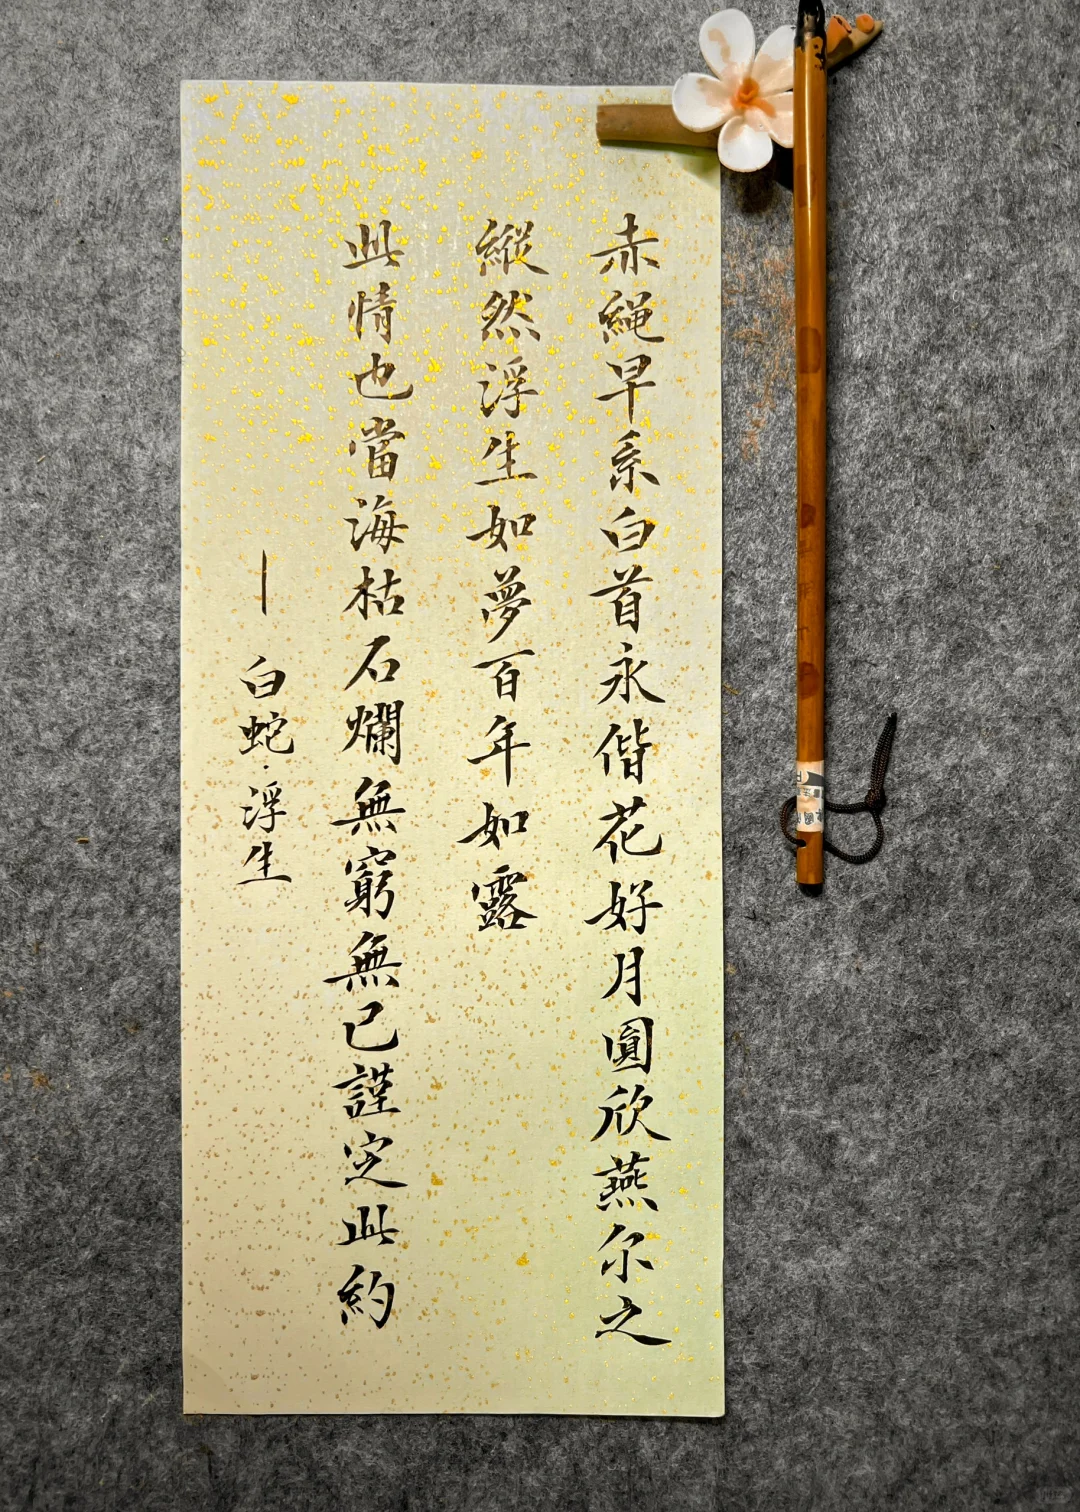 赤繩早系白首永偕花好月圓欣燕尔之
縱然浮生如夢百年如露
此情也當海枯石爛無窮無已謹定此約
—白蛇·浮生